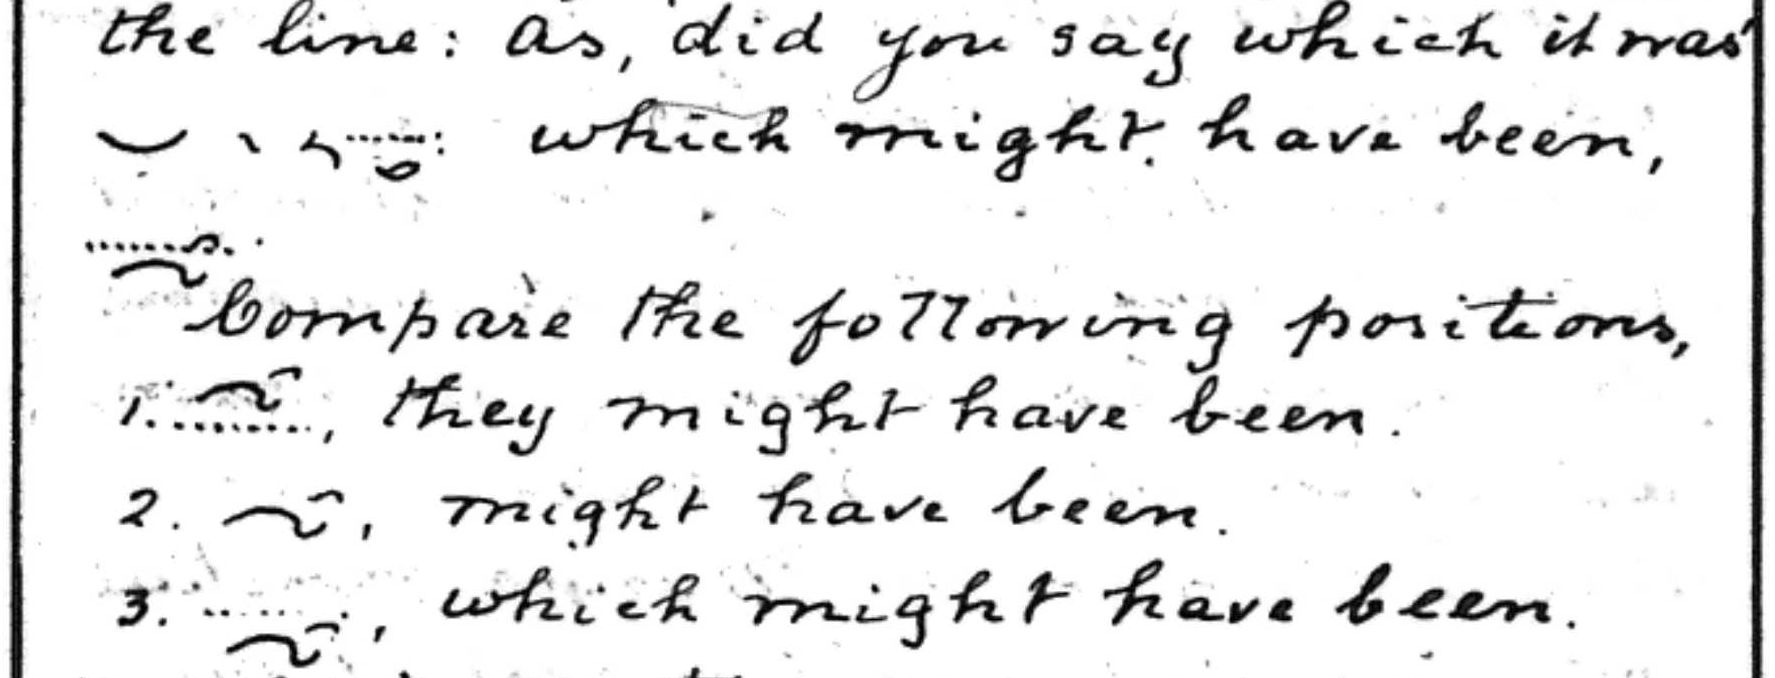 the line: as, did you say which it was
which might have been,
Compare the following positions,
1. , they might have been.
2. , might have been.
3. , which might have been.